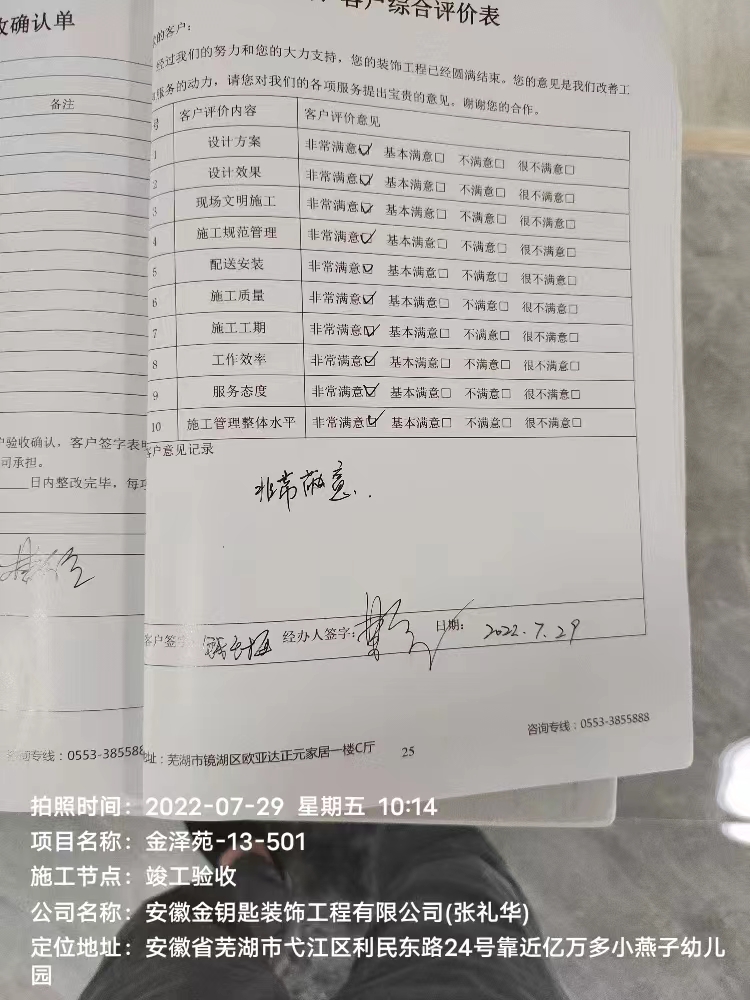 收确认单
备注
户验收确认，客户签字表明
司承担。
日内整改完毕，每项
咨询专线：0553-3855888
客户综合评价表
的客户：
经过我们的努力和您的大力支持，您的装饰工程已经圆满结束。您的意见是我们改善工
服务的动力，请您对我们的各项服务提出宝贵的意见。谢谢您的合作。
号 客户评价内容 客户评价意见
1 设计方案 非常满意☑ 基本满意□ 不满意□ 很不满意□
2 设计效果 非常满意☑ 基本满意□ 不满意□ 很不满意□
3 现场文明施工 非常满意☑ 基本满意□ 不满意□ 很不满意□
4 施工规范管理 非常满意☑ 基本满意□ 不满意□ 很不满意□
5 配送安装 非常满意☑ 基本满意□ 不满意□ 很不满意□
6 施工质量 非常满意☑ 基本满意□ 不满意□ 很不满意□
7 施工工期 非常满意☑ 基本满意□ 不满意□ 很不满意□
8 工作效率 非常满意☑ 基本满意□ 不满意□ 很不满意□
9 服务态度 非常满意☑ 基本满意□ 不满意□ 很不满意□
10 施工管理整体水平 非常满意☑ 基本满意□ 不满意□ 很不满意□
客户意见记录
非常满意..
客户签字 经办人签字： 日期： 2022.7.29
咨询专线：0553-3855888
地址：芜湖市镜湖区欧亚达正元家居一楼C厅 25
拍照时间：2022-07-29 星期五 10:14
项目名称：金泽苑-13-501
施工节点：竣工验收
公司名称：安徽金钥匙装饰工程有限公司(张礼华)
定位地址：安徽省芜湖市弋江区利民东路24号靠近亿万多小燕子幼儿
园